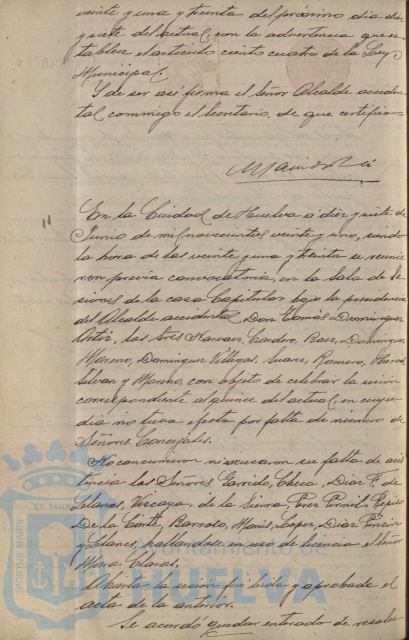 veinte y una y treinta del próximo día diez
y siete del actual, con la advertencia que es-
tablece el artículo ciento cuatro de la Ley
Municipal.
Y de ser así firma el Señor Alcalde acciden-
tal conmigo el Secretario, de que certifico=
11
En la Ciudad de Huelva a diez y siete de
Junio de mil novecientos veinte y uno, siendo
la hora de las veinte y una y treinta se reunie-
ron previa convocatoria, en la Sala de Se-
siones de la casa Capitular bajo la presidencia
del Alcalde accidental Don Tomás Domínguez
Ortiz, los Sres Narvaez, Cordero, Baez, Domínguez
Moreno, Domínguez Villegas, Suarez, Romero,
Silvan y Moreno, con objeto de celebrar la sesión
correspondiente al quince del actual, en cuyo
día no tuvo efecto por falta de número de
Señores Concejales.
No concurrieron ni excusaron su falta de asis-
tencia los Señores Garrido, Checa, Diaz F. de
Llanos, Vizcaya, de la Sierra, Perez
De la Corte, Barroso, Lopez, Diaz
y Llanes, hallándose en uso de licencia el Señor
Mora Claros.
Abierta la sesión fué leída y aprobada el
acta de la anterior.
Se acordó quedar enterado de
PORTUS MARIS
ET TERRAE
Ayuntamiento de
HUELVA